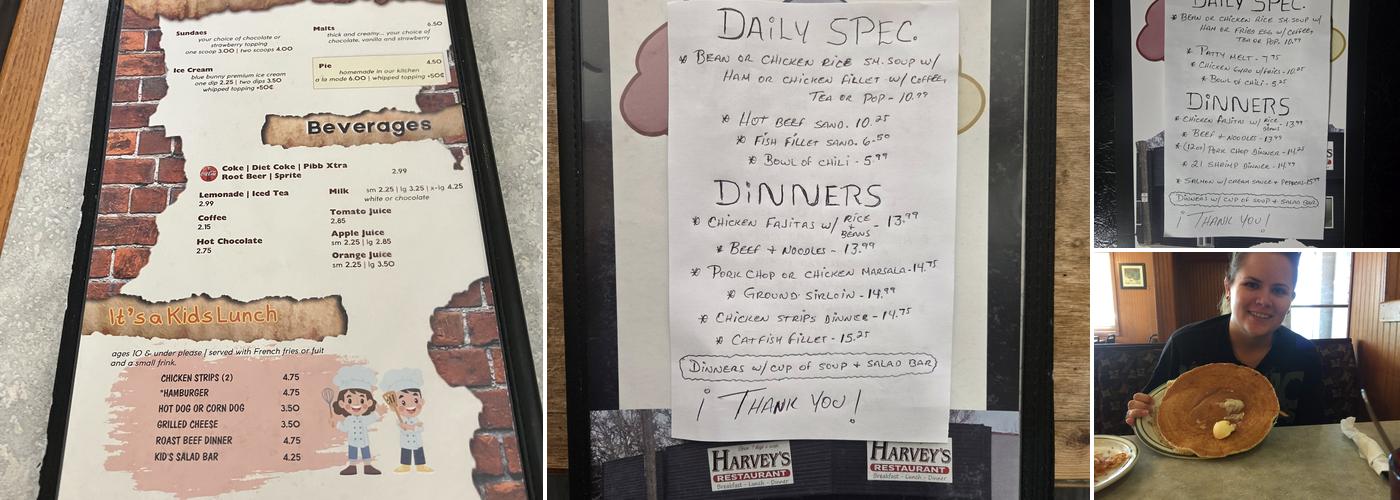 6.50
Sundaes
your choice of chocolate or
strawberry topping
one scoop 3.00 | two scoops 4.00
Malts
thick and creamy... your choice of
chocolate, vanilla and strawberry
Ice Cream
blue bunny premium ice cream
one dip 2.25 | two dips 3.50
whipped topping +50¢
Pie 4.50
homemade in our kitchen
a la mode 6.00 | whipped topping +50¢
Beverages
Coke | Diet Coke | Pibb Xtra
Root Beer | Sprite 2.99
Lemonade | Iced Tea
2.99
Coffee
2.15
Hot Chocolate
2.75
Milk sm 2.25 | lg 3.25 | x-lg 4.25
white or chocolate
Tomato Juice
2.85
Apple Juice
sm 2.25 | lg 2.85
Orange Juice
sm 2.25 | lg 3.50
It's a Kids Lunch
ages 10 & under please | served with French fries or fuit
and a small frink.
CHICKEN STRIPS (2) 4.75
*HAMBURGER 4.75
HOT DOG OR CORN DOG 3.50
GRILLED CHEESE 3.50
ROAST BEEF DINNER 4.75
KID'S SALAD BAR 4.25
DAILY SPEC.
* BEAN OR CHICKEN RICE SM. SOUP W/
HAM OR CHICKEN FILLET W/ COFFEE,
TEA OR POP - 10.99
* HOT BEEF SAND. 10.25
* FISH FILLET SAND. 6.50
* BOWL OF CHILI - 5.99
DINNERS
* CHICKEN FAJITAS W/ RICE + BEANS - 13.99
* BEEF + NOODLES - 13.99
* PORK CHOP OR CHICKEN MARSALA - 14.75
* GROUND SIRLOIN - 14.99
* CHICKEN STRIPS DINNER - 14.75
* CATFISH FILLET - 15.25
DINNERS W/ CUP OF SOUP + SALAD BAR
¡ THANK YOU !
HARVEY'S
RESTAURANT
Breakfast - Lunch - Dinner
HARVEY'S
RESTAURANT
Breakfast - Lunch - Dinner
DAILY SPEC.
* BEAN OR CHICKEN RICE SM. SOUP W/
HAM OR FRIED EGG W/ COFFEE,
TEA OR POP. 10.99
* PATTY MELT - 7.75
* CHICKEN GYRO W/FRIES - 10.25
* BOWL OF CHILI - 5.25
DINNERS
* CHICKEN FAJITAS W/ RICE + BEANS - 13.99
* BEEF + NOODLES - 13.99
* (12oz) PORK CHOP DINNER - 14.25
* 21 SHRIMP DINNER - 14.99
* SALMON W/ CREAM SAUCE +
DINNERS W/ CUP OF SOUP + SALAD BAR
¡ THANK YOU !